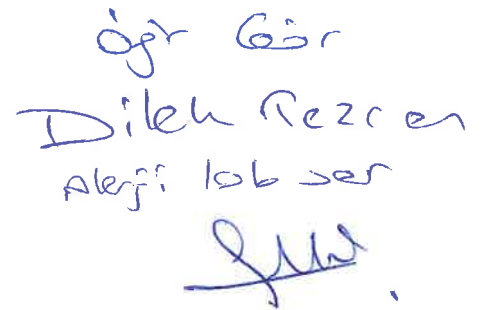 Öğr Gör
Dilek Tezcan
Alerji lab sor